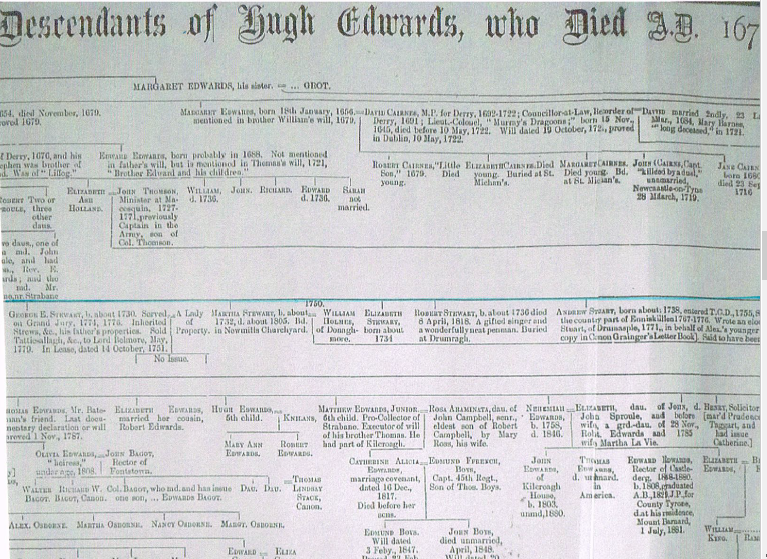 Descendants of Hugh Edwards, who Died A.D. 167
MARGARET EDWARDS, his sister. = ... GROT.
654. died November, 1679.
roved 1679.
MARGARET EDWARDS, born 18th January, 1656.
mentioned in brother William's will, 1679.
DAVID CAIRNES, M.P. for Derry, 1692-1722; Councillor-at-Law, Recorder of
Derry, 1691; Lieut.-Colonel, "Murray's Dragoons;" born 15 Nov.,
1645, died before 10 May, 1722. Will dated 19 October, 172, proved
in Dublin, 10 May, 1722.
DAVID married 2ndly, 23
Mar., 1684, Mary Barnes,
"long deceased," in 1721.
f Derry, 1670, and his
ephen was brother of
d. Was of "Lillog."
EDWARD EDWARDS, born probably in 1688. Not mentioned
in father's will, but is mentioned in Thomas's will, 1721,
"Brother Edward and his children."
ROBERT CAIRNES, "Little
Son," 1679. Died
young.
ELIZABETH CAIRNES. Died
young. Buried at St.
Michan's.
MARGARET CAIRNES.
Died young. Bd.
at St. Mician's.
JOHN (CAIRNES, Capt.
"killed by a duel,"
unmarried,
Newcastle-on-Tyne
28 March, 1719.
JANE CAIRN
born 168
died 23 Sep
1716
ROBERT TWO or
three
other
daus.
ELIZABETH
Ash
HOLLAND.
JOHN THOMSON,
Minister at Ma-
cosquin, 1727-
1771, previously
Captain in the
Army, son of
Col. Thomson.
WILLIAM,
d. 1736.
JOHN.
RICHARD.
EDWARD
d. 1736.
SARAH
not
married.
wo daus., one of
a md. John
ule, and had
n., Rev. E.
ards; and the
md. Mr.
ne, nr. Strabane
1750.
GEORGE E. STEWART, b. about 1730. Served
on Grand Jury, 1774, 1776. Inherited
Strews, &c., his father's properties. Sold
Tattiosallagh, &c., to Lord Belmore, May,
1779. In Lease, dated 14 October, 1751.
A Lady
of
Property.
No Issue.
MARTHA STEWART, b. about
1732, d. about 1805. Bd.
in Newmills Churchyard.
WILLIAM
HOLMES,
of Donagh-
more.
ELIZABETH
STEWART,
born about
1734
ROBERT STEWART, b. about 1736 died
8 April, 1818. A gifted singer and
a wonderfully neat penman. Buried
at Drumragh.
ANDREW STUART, born about 1738, entered T.C.D., 1755,
the country part of Enniskillen 1767-1776. Wrote an
Stuart, of Drumaspie, 1771, in behalf of Alex.'s younger
copy in Canon Grainger's Letter Book). Said to have been
HOMAS EDWARDS, Mr. Bate-
man's friend. Last docu-
mentary declaration or will
proved 1 Nov., 1787.
ELIZABETH EDWARDS,
married her cousin,
Robert Edwards.
HUGH EDWARDS,
6th child.
KNILANS.
MATTHEW EDWARDS, JUNIOR,
6th child. Pro-Collector of
Strabane. Executor of will
of his brother Thomas. He
had part of Kilcroagh.
ROSA ARAMINATA, dau. of
John Campbell, senr.,
eldest son of Robert
Campbell, by Mary
Ross, his wife.
NEHEMIAH
EDWARDS,
b. 1758,
d. 1846.
ELIZABETH, dau. of John
John Sproule, and
wife, a grd.-dau. of
Robt. Edwards and
wife Martha La Vie.
JOHN, d.
before
28
1785
HENRY, Solicitor
[mar'd Prudence
Taggart, and
had issue
Catherine].
MARY ANN
EDWARDS.
ROBERT
EDWARDS.
OLIVIA EDWARDS,
"heiress,"
under age, 1808.
JOHN BAGOT,
Rector of
Fontstown.
WALTER
BAGOT.
RICHARD W.
BAGOT, Canon.
Col. BAGOT, who md. and has issue
one son, ... EDWARD BAGOT.
DAU.
DAU.
THOMAS
LINDSAY
STACK,
Canon.
CATHERINE ALICIA
EDWARDS,
marriage covenant,
dated 16 Dec.,
1817.
Died before her
sons.
EDMUND FFRENCH,
BOYS,
Capt. 45th Regt.,
Son of Thos. Boys.
JOHN
of
Kilcroagh
House,
b. 1803.
unmd, 1880.
THOMAS
EDWARDS,
d. unmard.
in
America.
EDWARD EDWARDS,
Rector of Castle-
derg, 1848-1880.
b. 1808, graduated
A.B., 1829. J.P., for
County Tyrone,
d. at his residence,
Mount Barnard,
1 July, 1881.
ELIZABETH
EDWARDS,
WILLIAM
KING.
ALEX. OSBORNE. MARTHA OSBORNE. NANCY OSBORNE. MARGT. OSBORNE.
EDMUND BOYS.
Will dated
3 Feby., 1847.
JOHN BOYS,
died unmarried,
April, 1848.
EDWARD
ELIZA